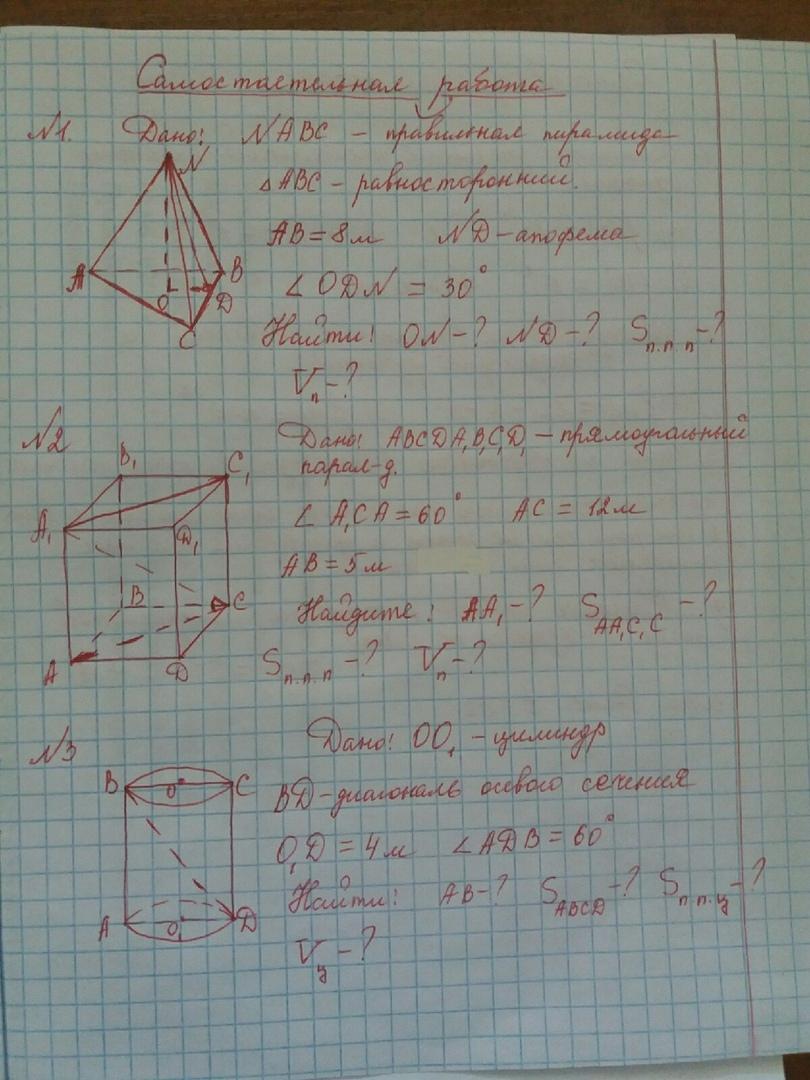 Самостоятельная работа
N1. Дано: NABC – правильная пирамида
N
△ABC – равносторонний.
AB = 8м ND – апофема
A B
O D
∠ODN = 30°
C
Найти: ON-? ND-? Sп.п.п-?
Vп-?
N2
Дано: ABCDA₁B₁C₁D₁ – прямоугольный
B₁ C₁
парал-д.
∠A₁CA = 60° AC = 12м
A₁ D₁
AB = 5м
B C
Найдите: AA₁-? SAA₁C₁C-?
A D
Sп.п.п-? Vп-?
N3
Дано: OO₁ – цилиндр
B O C
BD – диагональ осевого сечения
O₁D = 4м ∠ADB = 60°
Найти: AB-? SABCD-? Sп.п.ц-?
A O₁ D
Vц-?